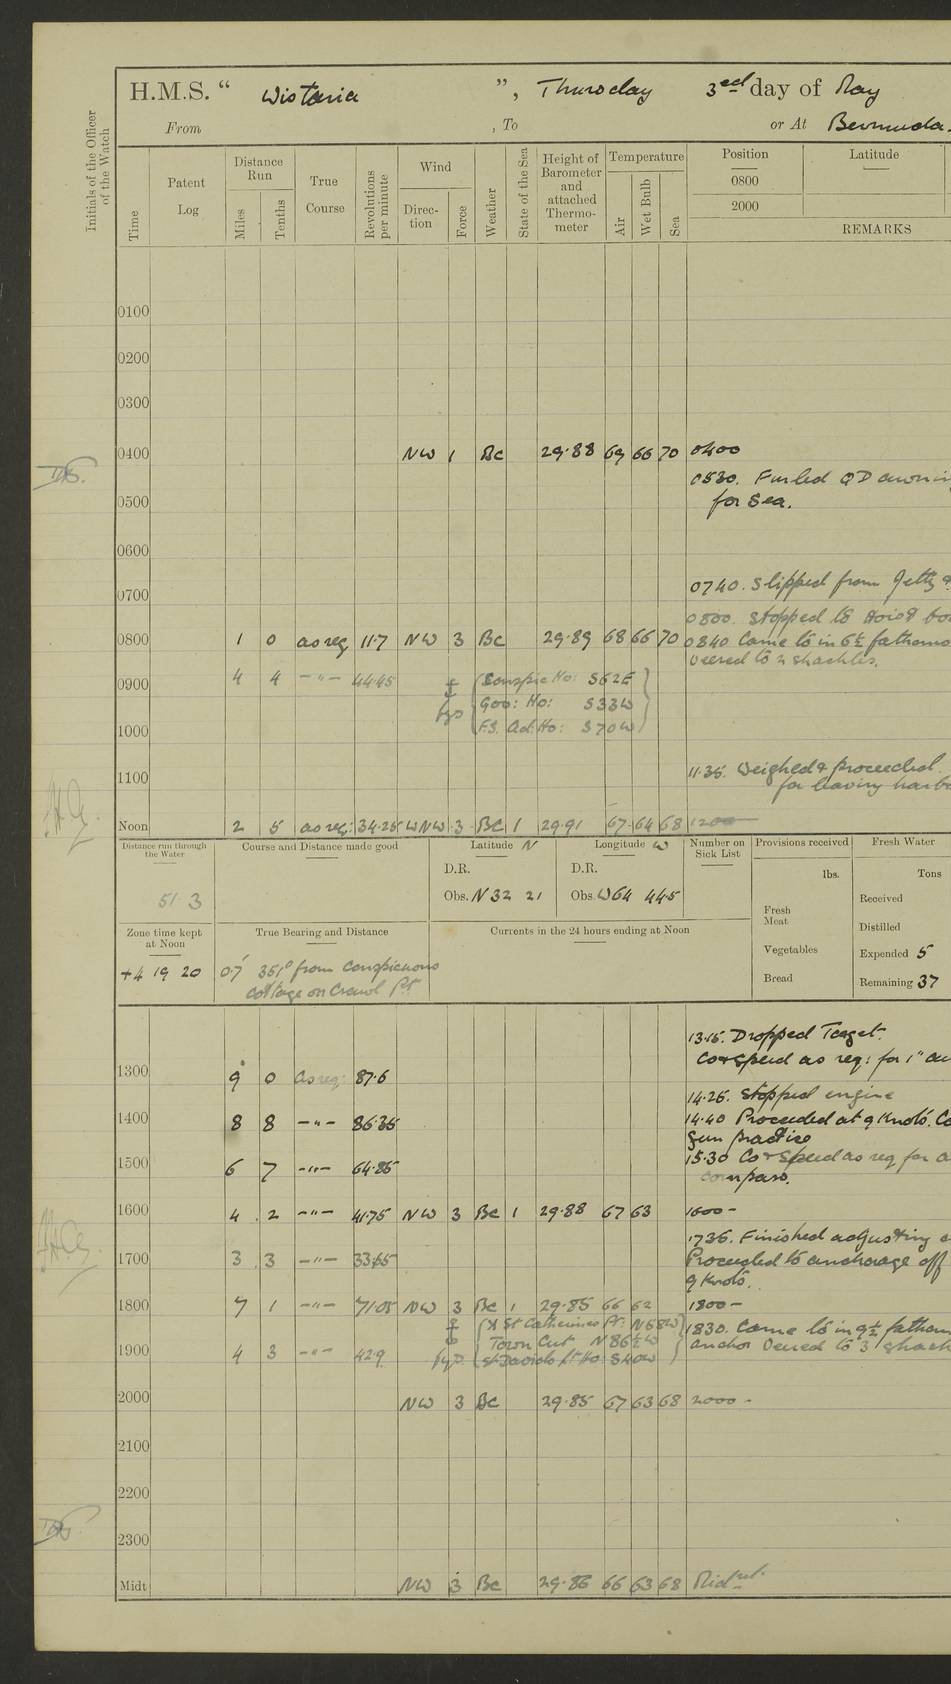 H.M.S. “ Wistaria ”, Thursday 3rd day of May
From , To or At Bermuda.
Initials of the Officer of the Watch
Time
Patent Log
Distance Run
Miles
Tenths
True Course
Revolutions per minute
Wind
Direction
Force
Weather
State of the Sea
Height of Barometer and attached Thermometer
Temperature
Air
Wet Bulb
Sea
Position Latitude
0800
2000
REMARKS
0100
0200
0300
0400 NW 1 Bc 29·88 69 66 70 0400
0530. Furled QD
0500 for Sea.
0600
0740. Slipped from Jetty &
0700
0800. Stopped to Hoist
0800 1 0 as req 11·7 NW 3 Bc 29·89 68 66 70 0840 Came to in 6½ fathoms
veered to 2 shackles.
0900 4 4 –"– 44·45 Conspic Ho: S62E
Gov: Ho: S33W
1000 F.S. Ad: Ho: S70W
1100 11·35. Weighed & proceeded.
for leaving
Noon 2 5 as req: 34·25 WNW 3 Bc 1 29·91 67 64 68 1200
Distance run through the Water
51 3
Course and Distance made good
Latitude N
D.R.
Obs. N 32 21
Longitude W
D.R.
Obs. W64 44·5
Number on Sick List
Provisions received
lbs.
Fresh Meat
Vegetables
Bread
Fresh Water
Tons
Received
Distilled
Expended 5
Remaining 37
Zone time kept at Noon
+4 19 20
True Bearing and Distance
0·7' 351° from Conspicuous
Cottage on Crawl Pt
Currents in the 24 hours ending at Noon
13·15. Dropped Target.
Co & Speed as req: for 1"
1300 9 0 as req: 87·6
14·25. Stopped engine
1400 8 8 –"– 86·35 14·40 Proceeded at 9 Knots. Co
Gun practice
1500 6 7 –"– 64·85 15·30 Co & Speed as req for
compass.
1600 4 2 –"– 41·75 NW 3 Bc 1 29·88 67 63 1600 –
1735. Finished adjusting
1700 3 3 –"– 33·65 Proceeded to anchorage off
9 Knots.
1800 7 1 –"– 71·05 NW 3 Bc 1 29·85 66 62 1800 –
St Catherines Pt: N68W 1830. Came to in 9½ fathoms
Town Cut N86½W anchor Veered to 3
1900 4 3 –"– 42·9 St Davids Lt Ho: S40W
2000 NW 3 Bc 29·85 67 63 68 2000 –
2100
2200
2300
Midt NW 3 Bc 29·86 66 63 68 Midnt.